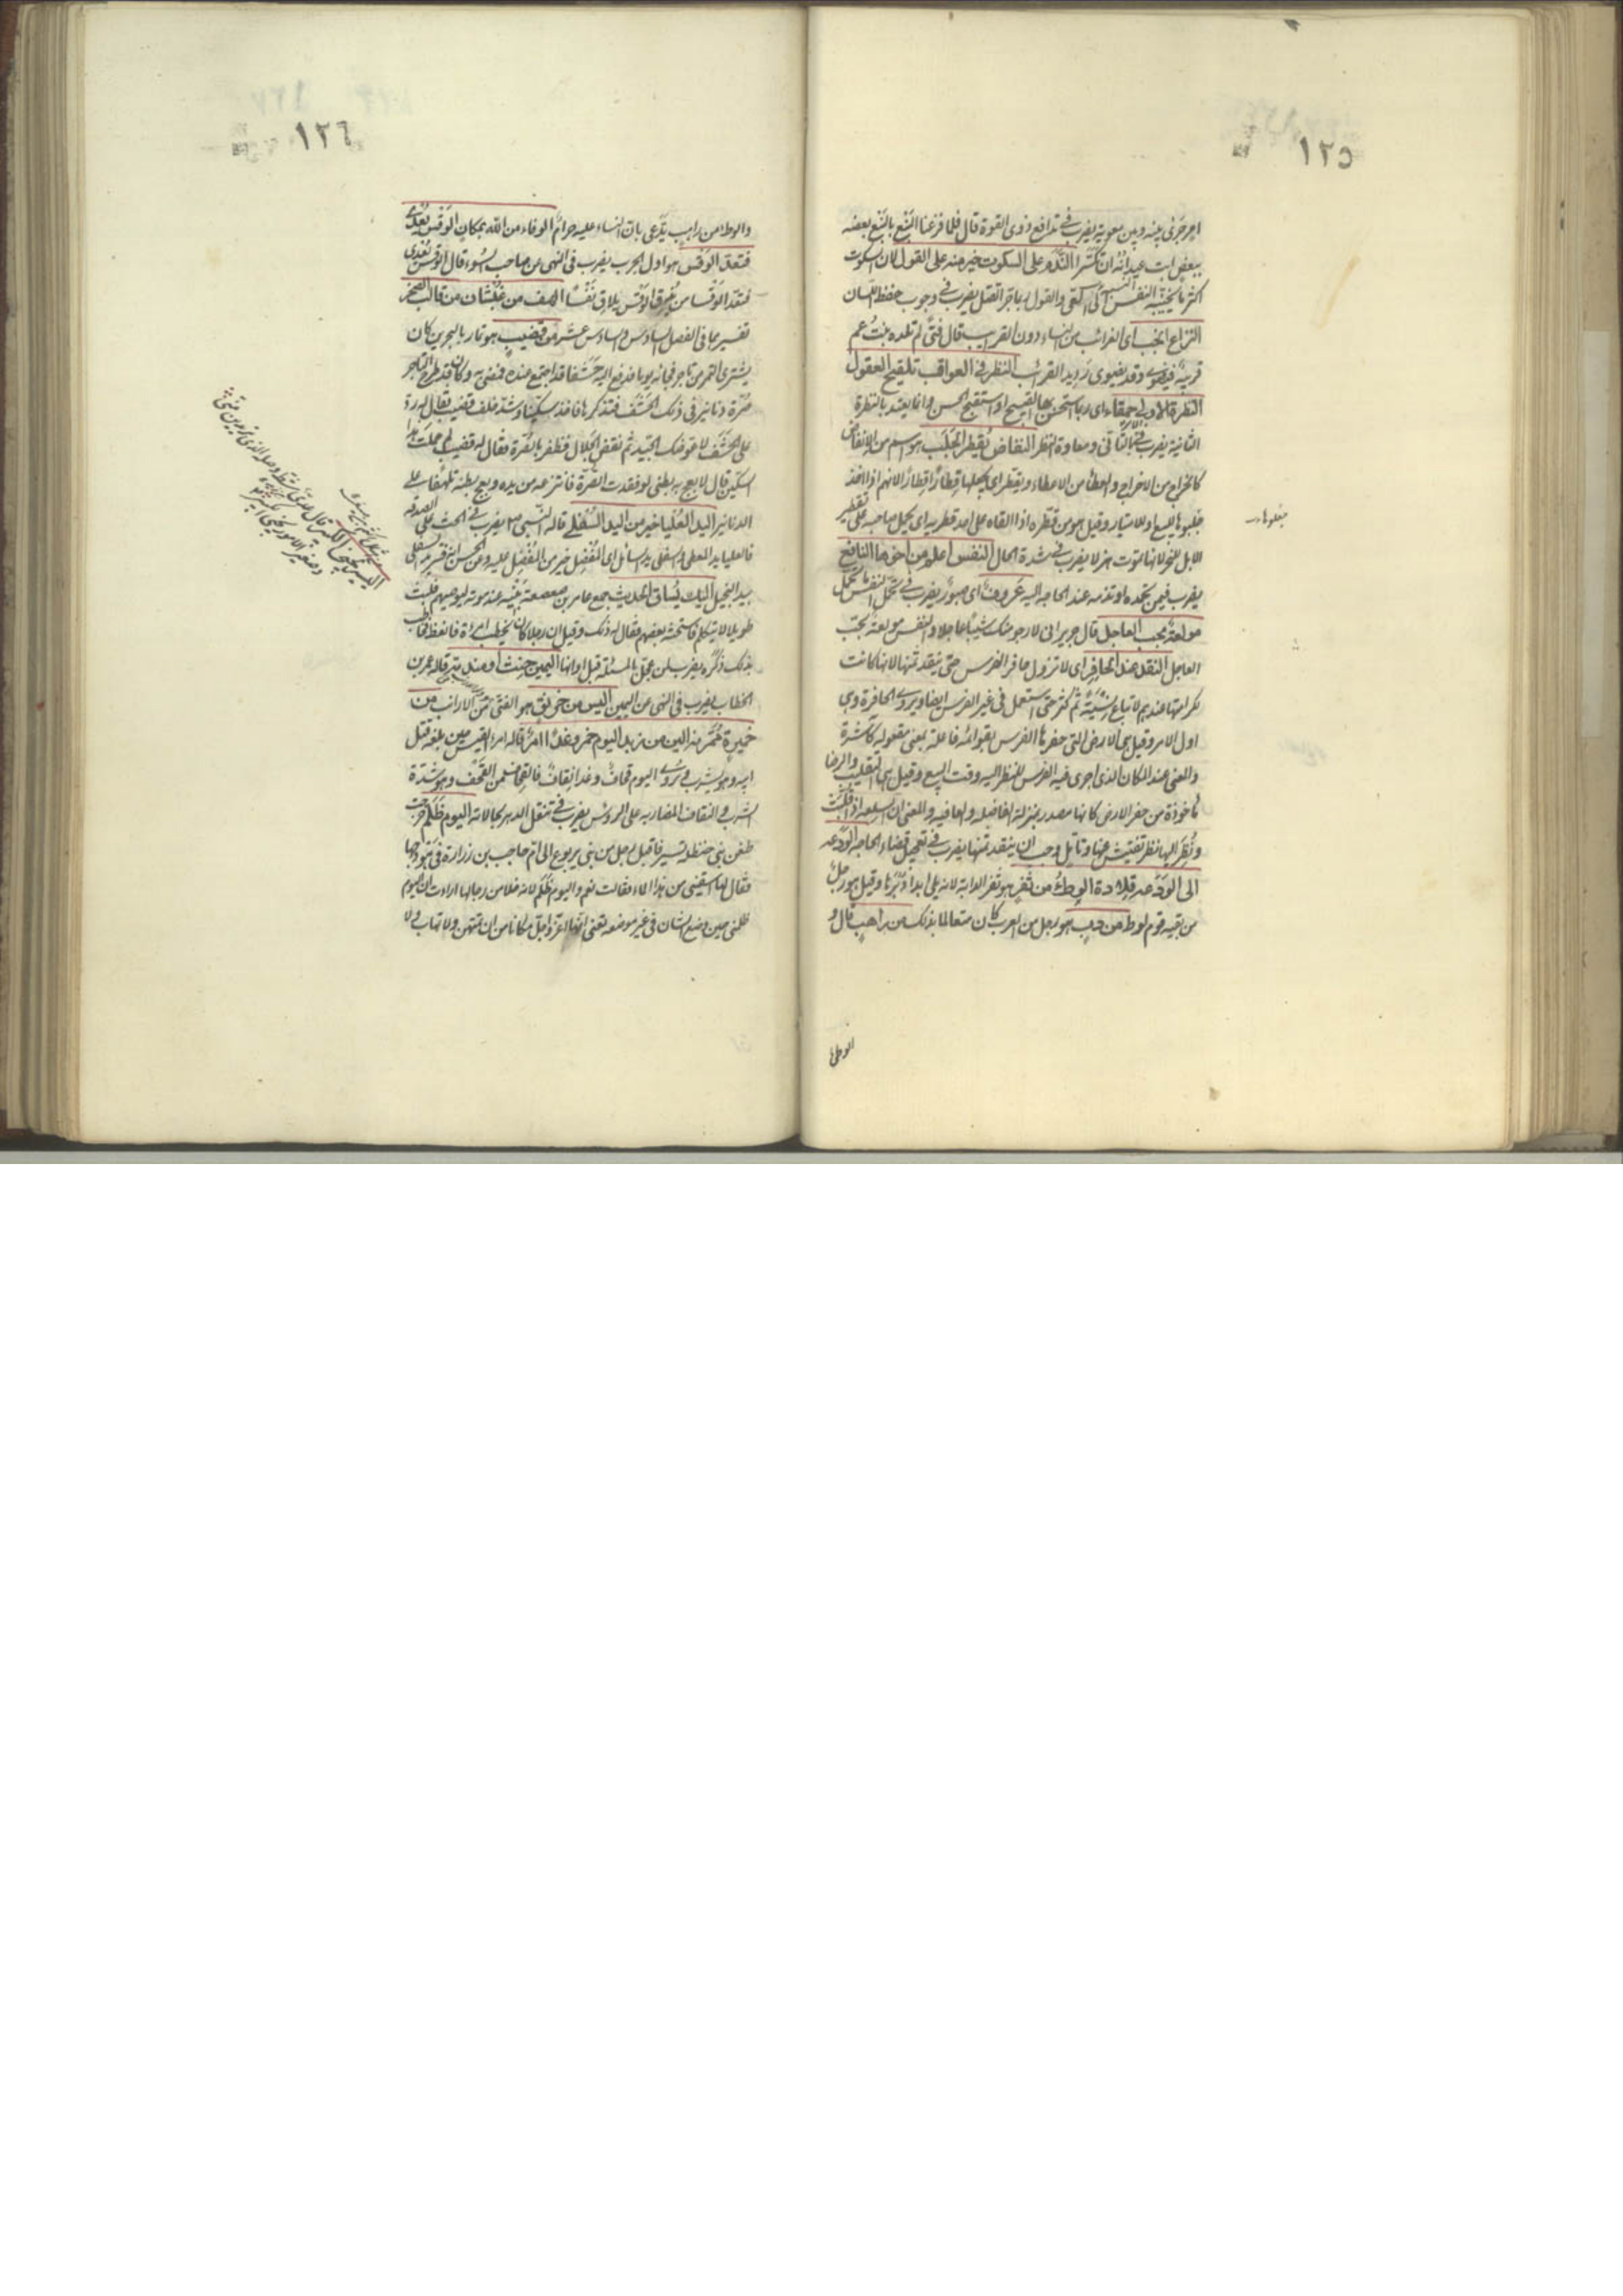 ١٢٥
امر جرى بينه وبين معوية يضرب في تدافع ذوى القوة قال فلما قرعنا النبع بالنبع بعضه
ببعض ابت عيدانه ان تكسرا الندم على السكوت خير منه على القول لان السكوت
اكثر ما يخيبه النفس والقول ربما جر القتل يضرب في وجوب حفظ اللسان
النزائع انجب اى الغرائب من النساء دون القرائب قال فتى لم تلده بنت عم
قريبة فيضوى وقد يضوى رديد القرائب النظر في العواقب تلقيح العقول
النظرة الاولى حمقاء اى ربما استحسن بها القبيح او استقبح الحسن وانما يعتد بالنظرة
الثانية يضرب في التأنى ومعاودة النظر النفاض يقطر الجلب هو اسم من الانفاض
كالخراج من الاخراج والعطاء من الاعطاء ويقطر اى يجعلها قطارا قطارا لانهم اذا انفضوا
جلبوها للبيع او للامتيار وقيل هو من قطره اذا القاه على احد قطريه اى يحمل صاحبه على تقطير
الابل للنحر لانها تموت هزلا يضرب في شدة الحال النفس اعلم من اخوها النافع
يضرب فيمن تحمده او تذمه عند الحاجة اليه عروف اى صبور يضرب في تحمل النفس ما تحمل
مولعة بحب العاجل قال جرير انى لارجو منك شيئا عاجلا والنفس مولعة بحب
العاجل النقد عند الحافر اى لا تزول حافر الفرس حتى ينقد ثمنها لانها كانت
لكرامتها عندهم لا تباع نسيئة ثم كثر حتى استعمل في غير الفرس ايضا ويروى الحافرة وهى
اول الامر وقيل هى الارض التى حفرها الفرس بقوائمه فاعلة بمعنى مفعولة
والمعنى عند المكان الذى اجرى فيه الفرس للنظر اليه وقت البيع وقيل هى التقليب والرضا
مأخوذة من حفر الارض كانها مصدر بمنزلة الفاضلة والعافية والمعنى ان السلعة اذا قلبت
ونظر اليها نظر تفتيش عنها وتأمل وجب ان ينقد ثمنها يضرب في تعجيل قضاء الحاجة الودعه
الى الودعه قلادة الوطء من ثفر هو ثفر الدابة لانه يلى ابدا دبرها وقيل هو رجل
من بقية قوم لوط من دب هو رجل من العرب كان متعالما بذلك من راهب قال و
الوطئها
جلبوها
١٢٦
والوطا من راهب يدعى بان النساء عليه حرام الوفاء من الله بمكان الوقس يعدى
فتعد الوقس هو اول الجرب يضرب في النهى عن صاحب السوء قال الوقس يعدى
فتعد الوقسا من يعرق الوقس يلاق تعسا الهف من غبشان من قالب الصخر
تفسيرهما في الفصل السادس والسادس عشر من قضيب هو تمار بالبحرين كان
يشترى التمر من تاجر فجاءه يوما فدفع اليه حشفا قد اجتمع عنده فمضى به وكان قد طرح التاجر
صرة دنانير في ذلك الحشف فتذكرها فاخذ سكينا وشد خلف قضيب فقال له رد
على الحشف لاعوضك الجيد ثم نفض الجلال فظفر بالصرة فقال له قضيب لم حملت هذا
السكين قال لابعج به بطنى لو فقدت الصرة فانتزعه من يده وبعج بطنه تلهفا على
الدنانير اليد العليا خير من اليد السفلى قاله النبى ص يضرب في الحث على الصدقة
فالعليا يد المعطى والسفلى يد السائل اى المفضل خير من المفضل عليه وعن الحسن انه فسر السفلى
بيد البخيل اليك يساق الحديث جمع عامر بن صعصعة بنيه عند موته ليوصيهم فلبث
طويلا لا يتكلم فاستحثه بعضهم فقال له ذلك وقيل ان رجلا كان يخطب امرأة فانعظ فخاف
بذلك ذكره يضرب لمن عجل بالمسئلة قبل اوانها اليمين حنث او مندمة قاله عمر بن
الخطاب يضرب في النهى عن اليمين اليس من خرنق هو الفتى من الارانب من
خميرة ثمر هذا لين من زبد اليوم خمر وغدا امر قاله امرء القيس حين بلغه قتل
ابيه وهو يشرب ويروى اليوم قحاف وغدا نقاف فالقحاف من القحف وهو شدة
الشرب والنقاف المضاربة على الرؤس يضرب في تنقل الدهر بحالاته اليوم ظلم
ظعن بنى حنظلة تسير فاقبل رجل من بنى يربوع الى ام حاجب بن زرارة في هودجها
فقال لها اسقينى من هذا الماء فقالت نعم واليوم ظلم لانه خلا من رجالها ارادت ان اليوم
ظلمنى حين وضع الشان في غير موضعه تعنى انها اعز واجل مكانا من ان تمتهن ولا تهاب في لا